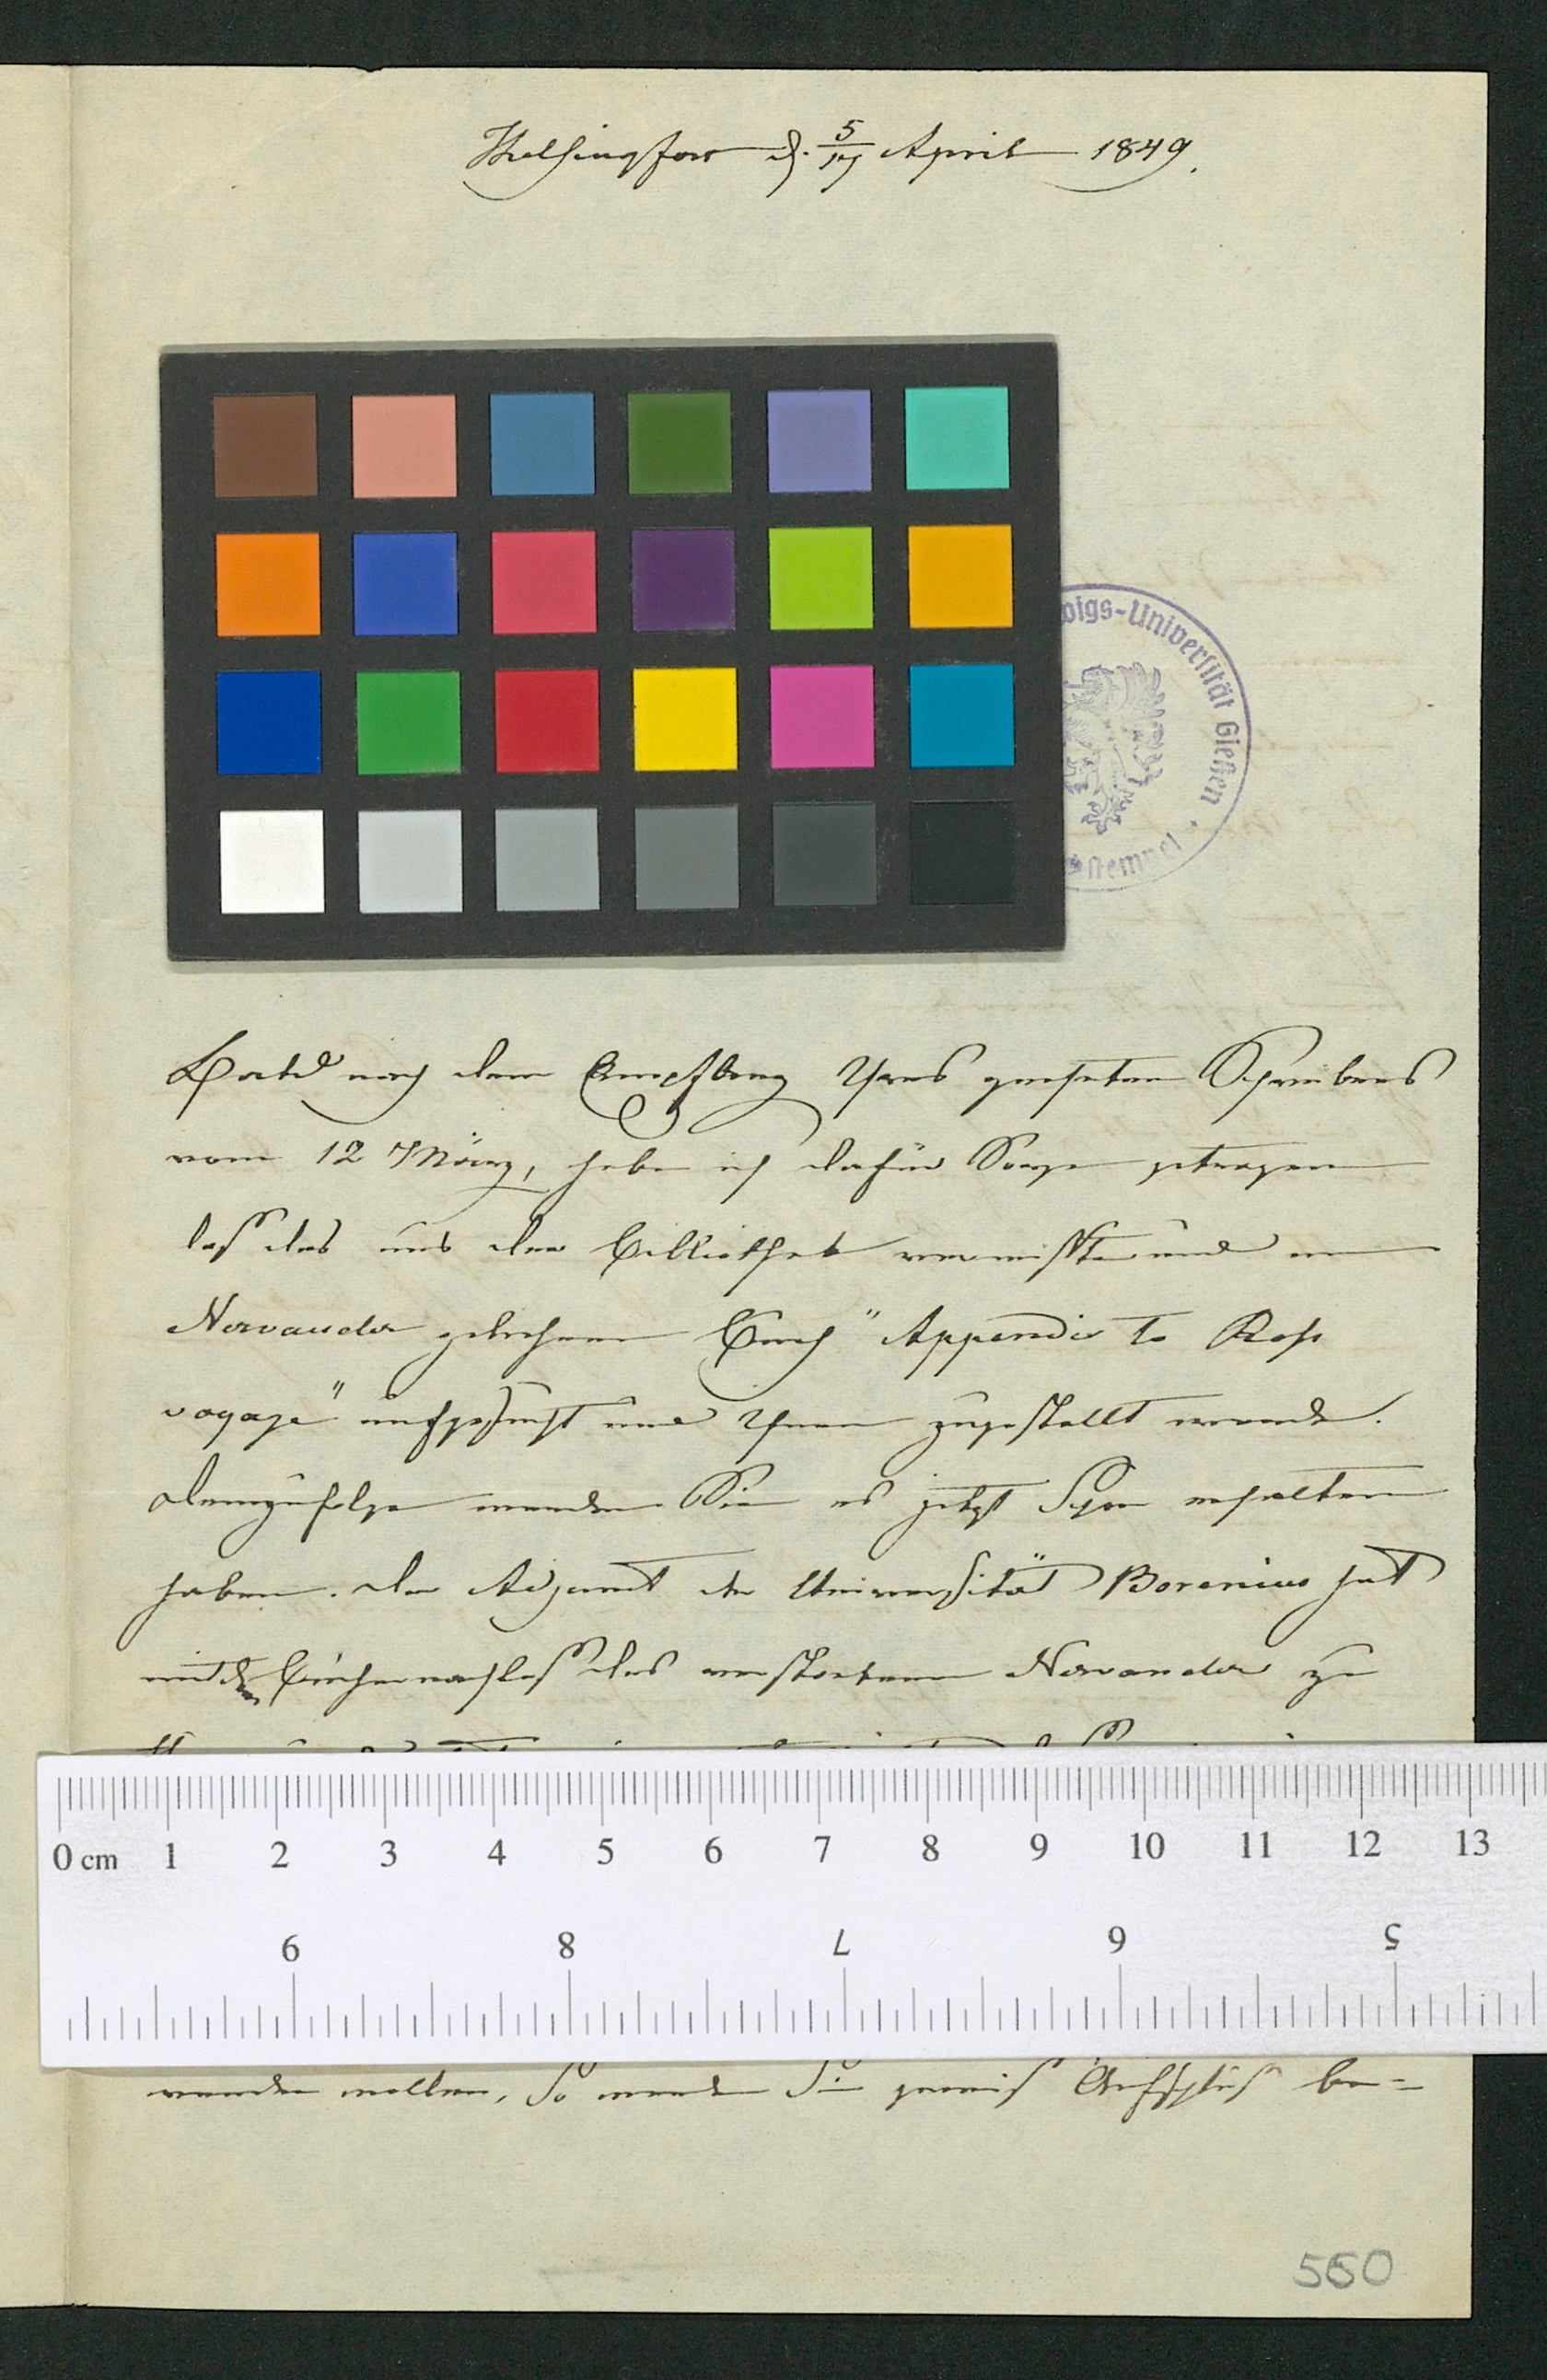 Helsingfors d. 5/17 April 1849.
wigs-Universität Gießen
stempel
Bald nach dem Empfang Ihres geehrten Schreibens
vom 12 März, habe ich dafür Sorge getragen
daß das aus der Bibliothek vermißte und
Nervander geliehene Buch "Appendix to Ross
voyage" aufgesucht und Ihnen zugestellt werde.
Demzufolge werden Sie es jetzt schon erhalten
haben. Der Adjunct der Universität Borenius hat
mit dem Büchernachlaß des verstorbenen Nervander zu
0 cm 1 2 3 4 5 6 7 8 9 10 11 12 13
9 8 7 6 5
wenden wollen, so werden Sie gewiß Aufschluß be=
560